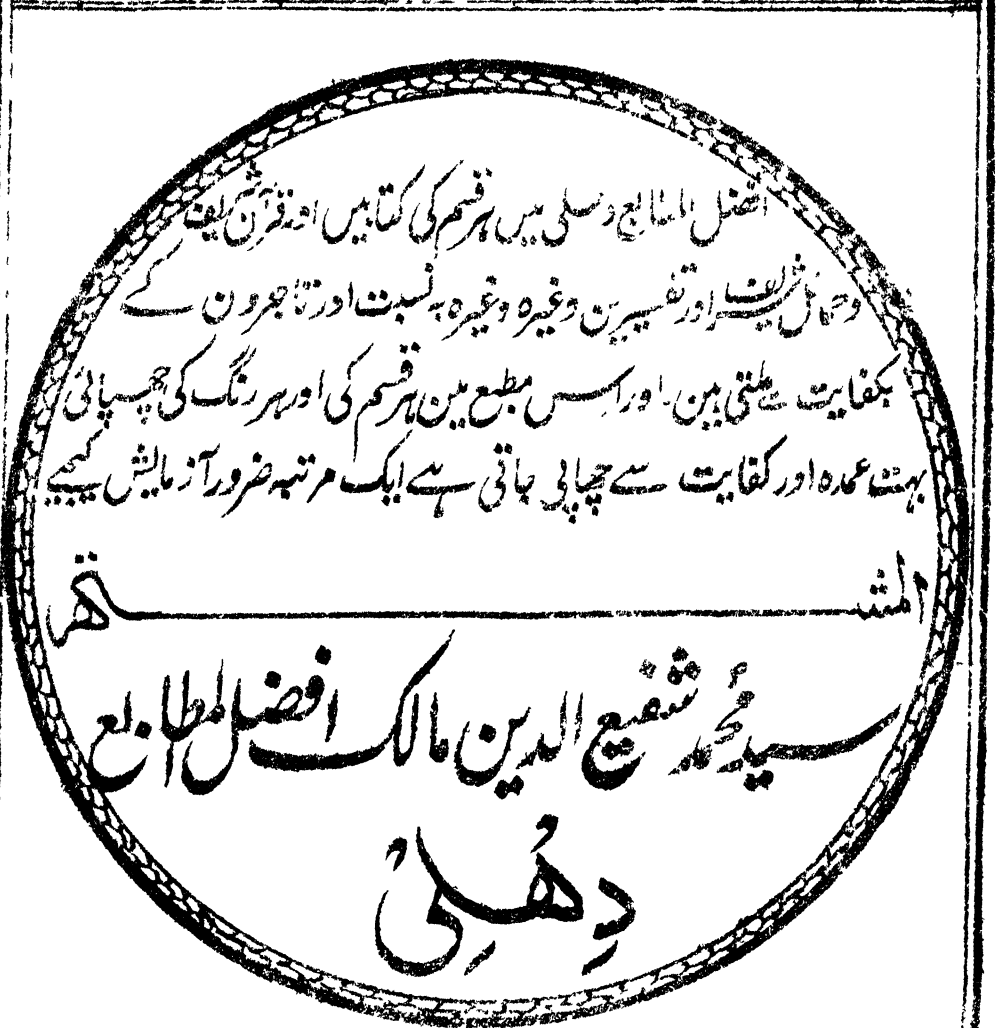 افضل المطابع دہلی میں ہر قسم کی کتابیں اور قرآن شریف
وحمائل شریف اور تفسیرین وغیرہ وغیرہ بہ نسبت اور تاجرون کے
بکفایت سے ملتی ہین۔ اور اس مطبع مین ہر قسم کی اور ہر رنگ کی چھپائی
بہت عمدہ اور کفایت سے چھاپی جاتی ہے ایک مرتبہ ضرور آزمایش کیجیے
المشتهر
سید محمد شفیع الدین مالک افضل المطابع
دِهُلِیْ